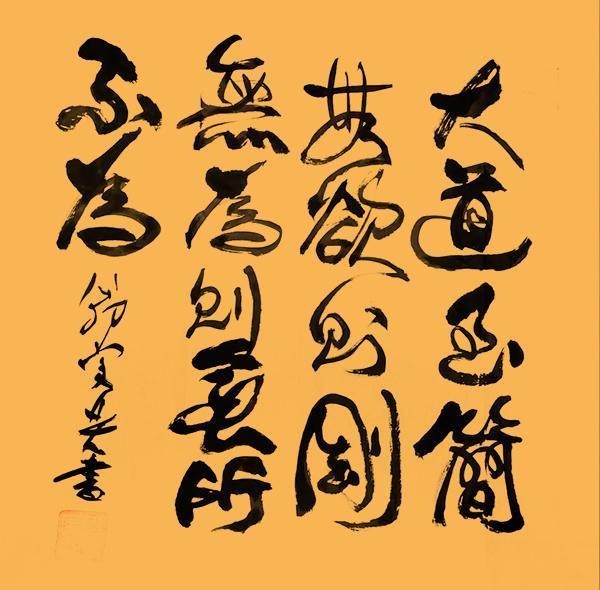 大道至簡
無欲則剛
無為則無所
不為
書